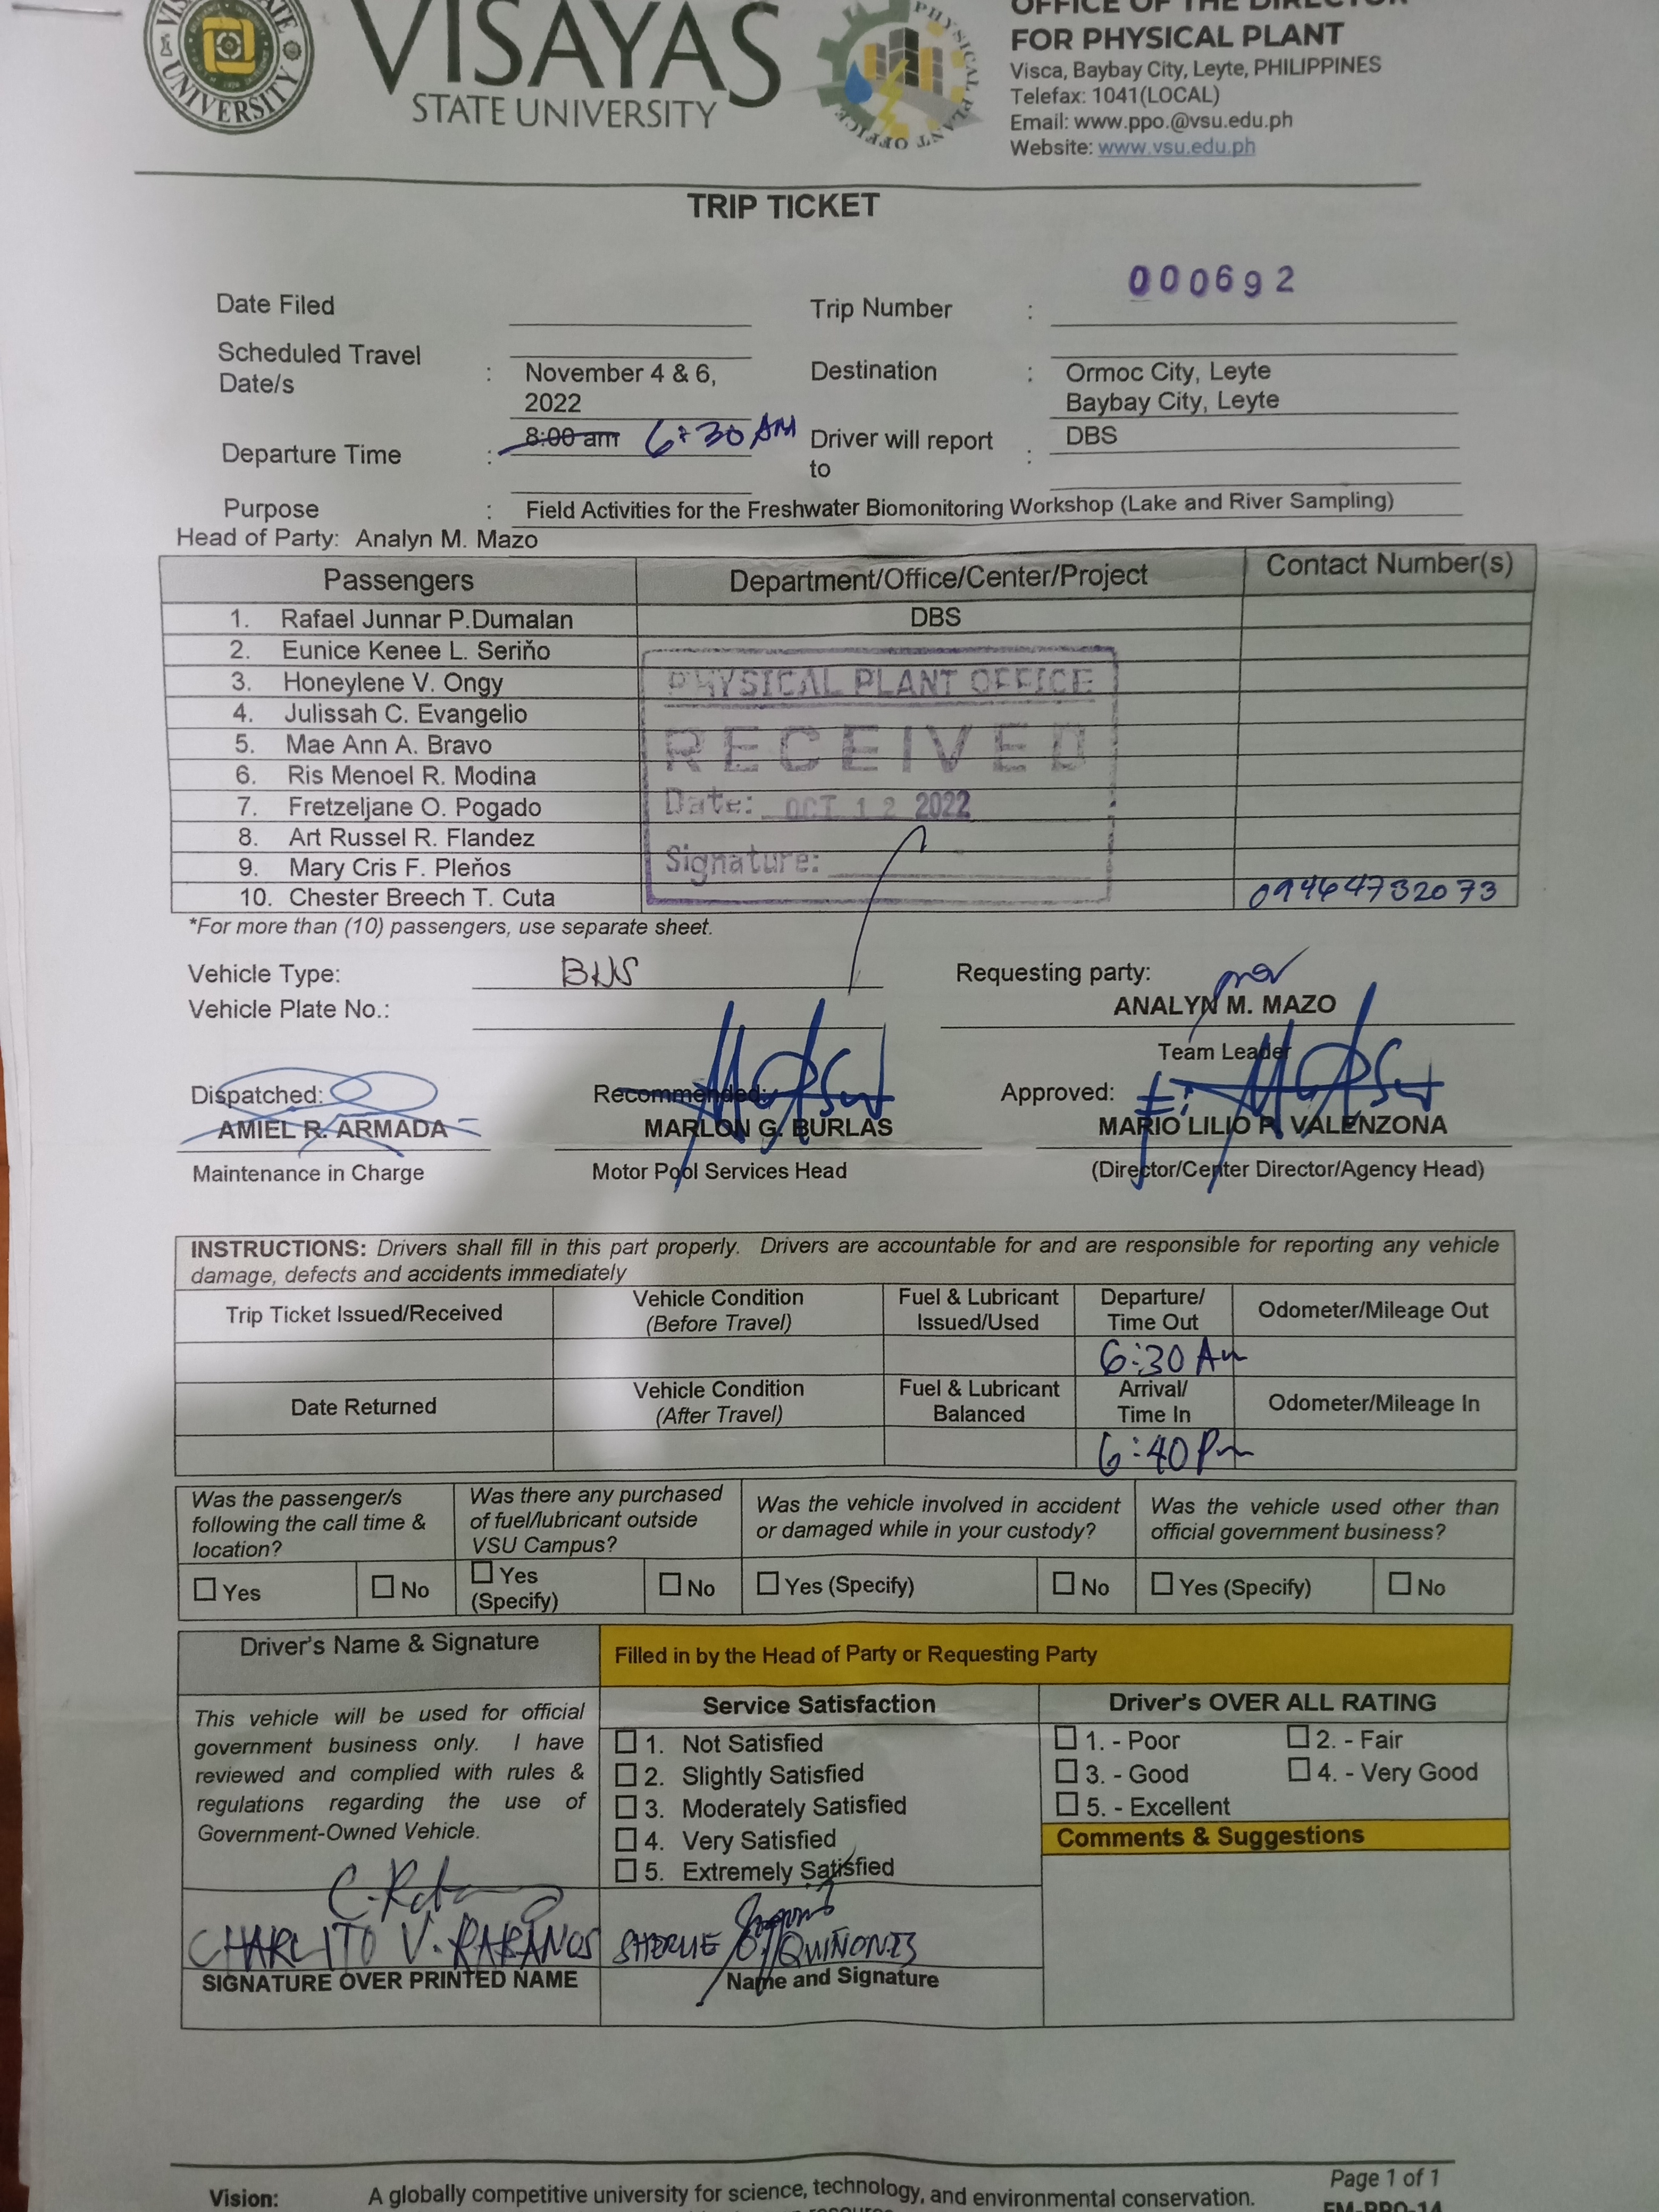 VISAYAS
STATE UNIVERSITY
UNIVERSITY
PHYSICAL PLANT OFFICE
OFFICE OF THE DIRECTOR
FOR PHYSICAL PLANT
Visca, Baybay City, Leyte, PHILIPPINES
Telefax: 1041(LOCAL)
Email: www.ppo.@vsu.edu.ph
Website: www.vsu.edu.ph
TRIP TICKET
Date Filed
Trip Number : 000692
Scheduled Travel
Date/s : November 4 & 6,
2022
Destination : Ormoc City, Leyte
Baybay City, Leyte
Departure Time : 8:00 am 6:30 AM
Driver will report
to : DBS
Purpose : Field Activities for the Freshwater Biomonitoring Workshop (Lake and River Sampling)
Head of Party: Analyn M. Mazo
Passengers Department/Office/Center/Project Contact Number(s)
1. Rafael Junnar P.Dumalan DBS
2. Eunice Kenee L. Seriňo
3. Honeylene V. Ongy
4. Julissah C. Evangelio
5. Mae Ann A. Bravo
6. Ris Menoel R. Modina
7. Fretzeljane O. Pogado
8. Art Russel R. Flandez
9. Mary Cris F. Pleňos
10. Chester Breech T. Cuta 09464732073
PHYSICAL PLANT OFFICE
RECEIVED
Date: OCT 12 2022
Signature:
*For more than (10) passengers, use separate sheet.
Vehicle Type: BUS
Requesting party:
Vehicle Plate No.:
ANALYN M. MAZO
Team Leader
Dispatched: Recommended: Approved:
AMIEL R. ARMADA MARLON G. BURLAS MARIO LILIO P. VALENZONA
Maintenance in Charge Motor Pool Services Head (Director/Center Director/Agency Head)
INSTRUCTIONS: Drivers shall fill in this part properly. Drivers are accountable for and are responsible for reporting any vehicle
damage, defects and accidents immediately
Trip Ticket Issued/Received
Vehicle Condition
(Before Travel)
Fuel & Lubricant
Issued/Used
Departure/
Time Out
Odometer/Mileage Out
6:30 Am
Date Returned
Vehicle Condition
(After Travel)
Fuel & Lubricant
Balanced
Arrival/
Time In
Odometer/Mileage In
6:40 Pm
Was the passenger/s
following the call time &
location?
Was there any purchased
of fuel/lubricant outside
VSU Campus?
Was the vehicle involved in accident
or damaged while in your custody?
Was the vehicle used other than
official government business?
☐ Yes ☐ No
☐ Yes
(Specify)
☐ No
☐ Yes (Specify) ☐ No
☐ Yes (Specify) ☐ No
Driver's Name & Signature
Filled in by the Head of Party or Requesting Party
This vehicle will be used for official
government business only. I have
reviewed and complied with rules &
regulations regarding the use of
Government-Owned Vehicle.
Service Satisfaction
☐ 1. Not Satisfied
☐ 2. Slightly Satisfied
☐ 3. Moderately Satisfied
☐ 4. Very Satisfied
☐ 5. Extremely Satisfied
Driver's OVER ALL RATING
☐ 1. - Poor ☐ 2. - Fair
☐ 3. - Good ☐ 4. - Very Good
☐ 5. - Excellent
Comments & Suggestions
CHARLITO V. RABANOS
SIGNATURE OVER PRINTED NAME
SHERLIE O. QUIÑONES
Name and Signature
Page 1 of 1
Vision: A globally competitive university for science, technology, and environmental conservation.
FM-PPO-14